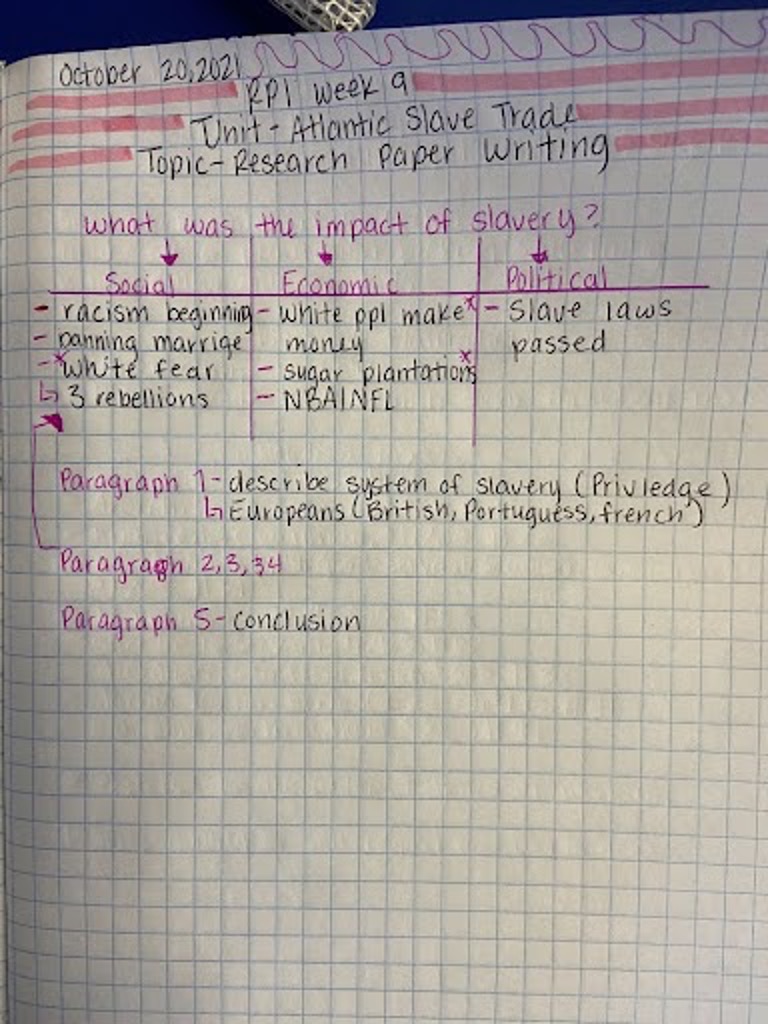 October 20, 2021
RPI Week 9
Unit - Atlantic Slave Trade
Topic - Research Paper Writing
What was the impact of slavery?
Social Economic Political
- racism beginning - white ppl make x - Slave laws
- banning marrige money passed
- x white fear - sugar plantations x
↳ 3 rebellions - NBA/NFL
Paragraph 1 - describe system of slavery (Privledge)
↳ Europeans (British, Portuguess, french)
Paragraph 2, 3, 34
Paragraph 5 - conclusion